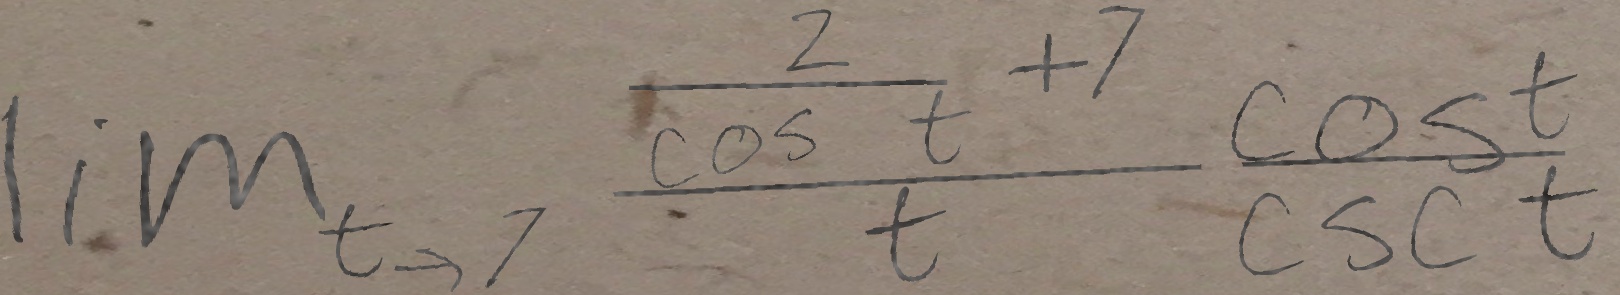 \lim_{t \to 7} \frac{\frac{2}{\cos t} + 7}{t} \frac{\cos t}{\csc t}